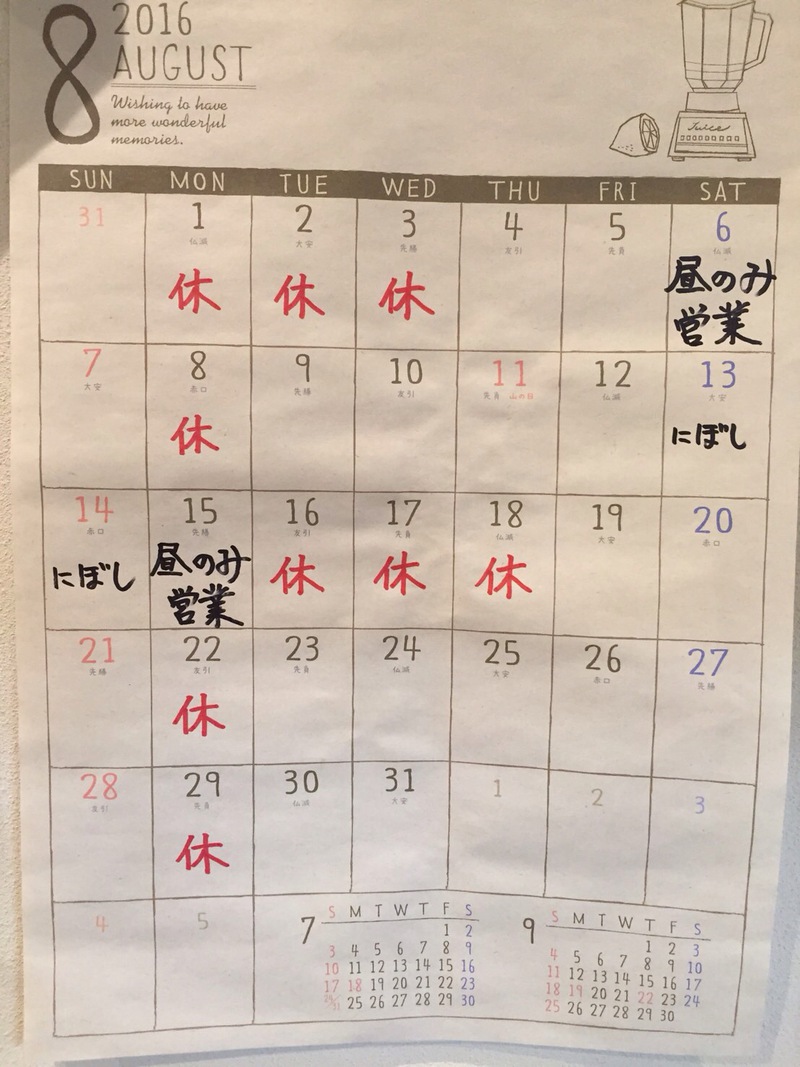 8
2016
AUGUST
Wishing to have
more wonderful
memories.
Juice
SUN MON TUE WED THU FRI SAT
31 1 2 3 4 5 6
仏滅 大安 先勝 友引 先負 仏滅
休 休 休 昼のみ
営業
7 8 9 10 11 12 13
大安 赤口 先勝 友引 先負 山の日 仏滅 大安
休 にぼし
14 15 16 17 18 19 20
赤口 先勝 友引 先負 仏滅 大安 赤口
にぼし 昼のみ 休 休 休
営業
21 22 23 24 25 26 27
先勝 友引 先負 仏滅 大安 赤口 先勝
休
28 29 30 31 1 2 3
友引 先負 仏滅 大安
休
4 5
7 S M T W T F S
1 2
3 4 5 6 7 8 9
10 11 12 13 14 15 16
17 18 19 20 21 22 23
24/31 25 26 27 28 29 30
9 S M T W T F S
1 2 3
4 5 6 7 8 9 10
11 12 13 14 15 16 17
18 19 20 21 22 23 24
25 26 27 28 29 30